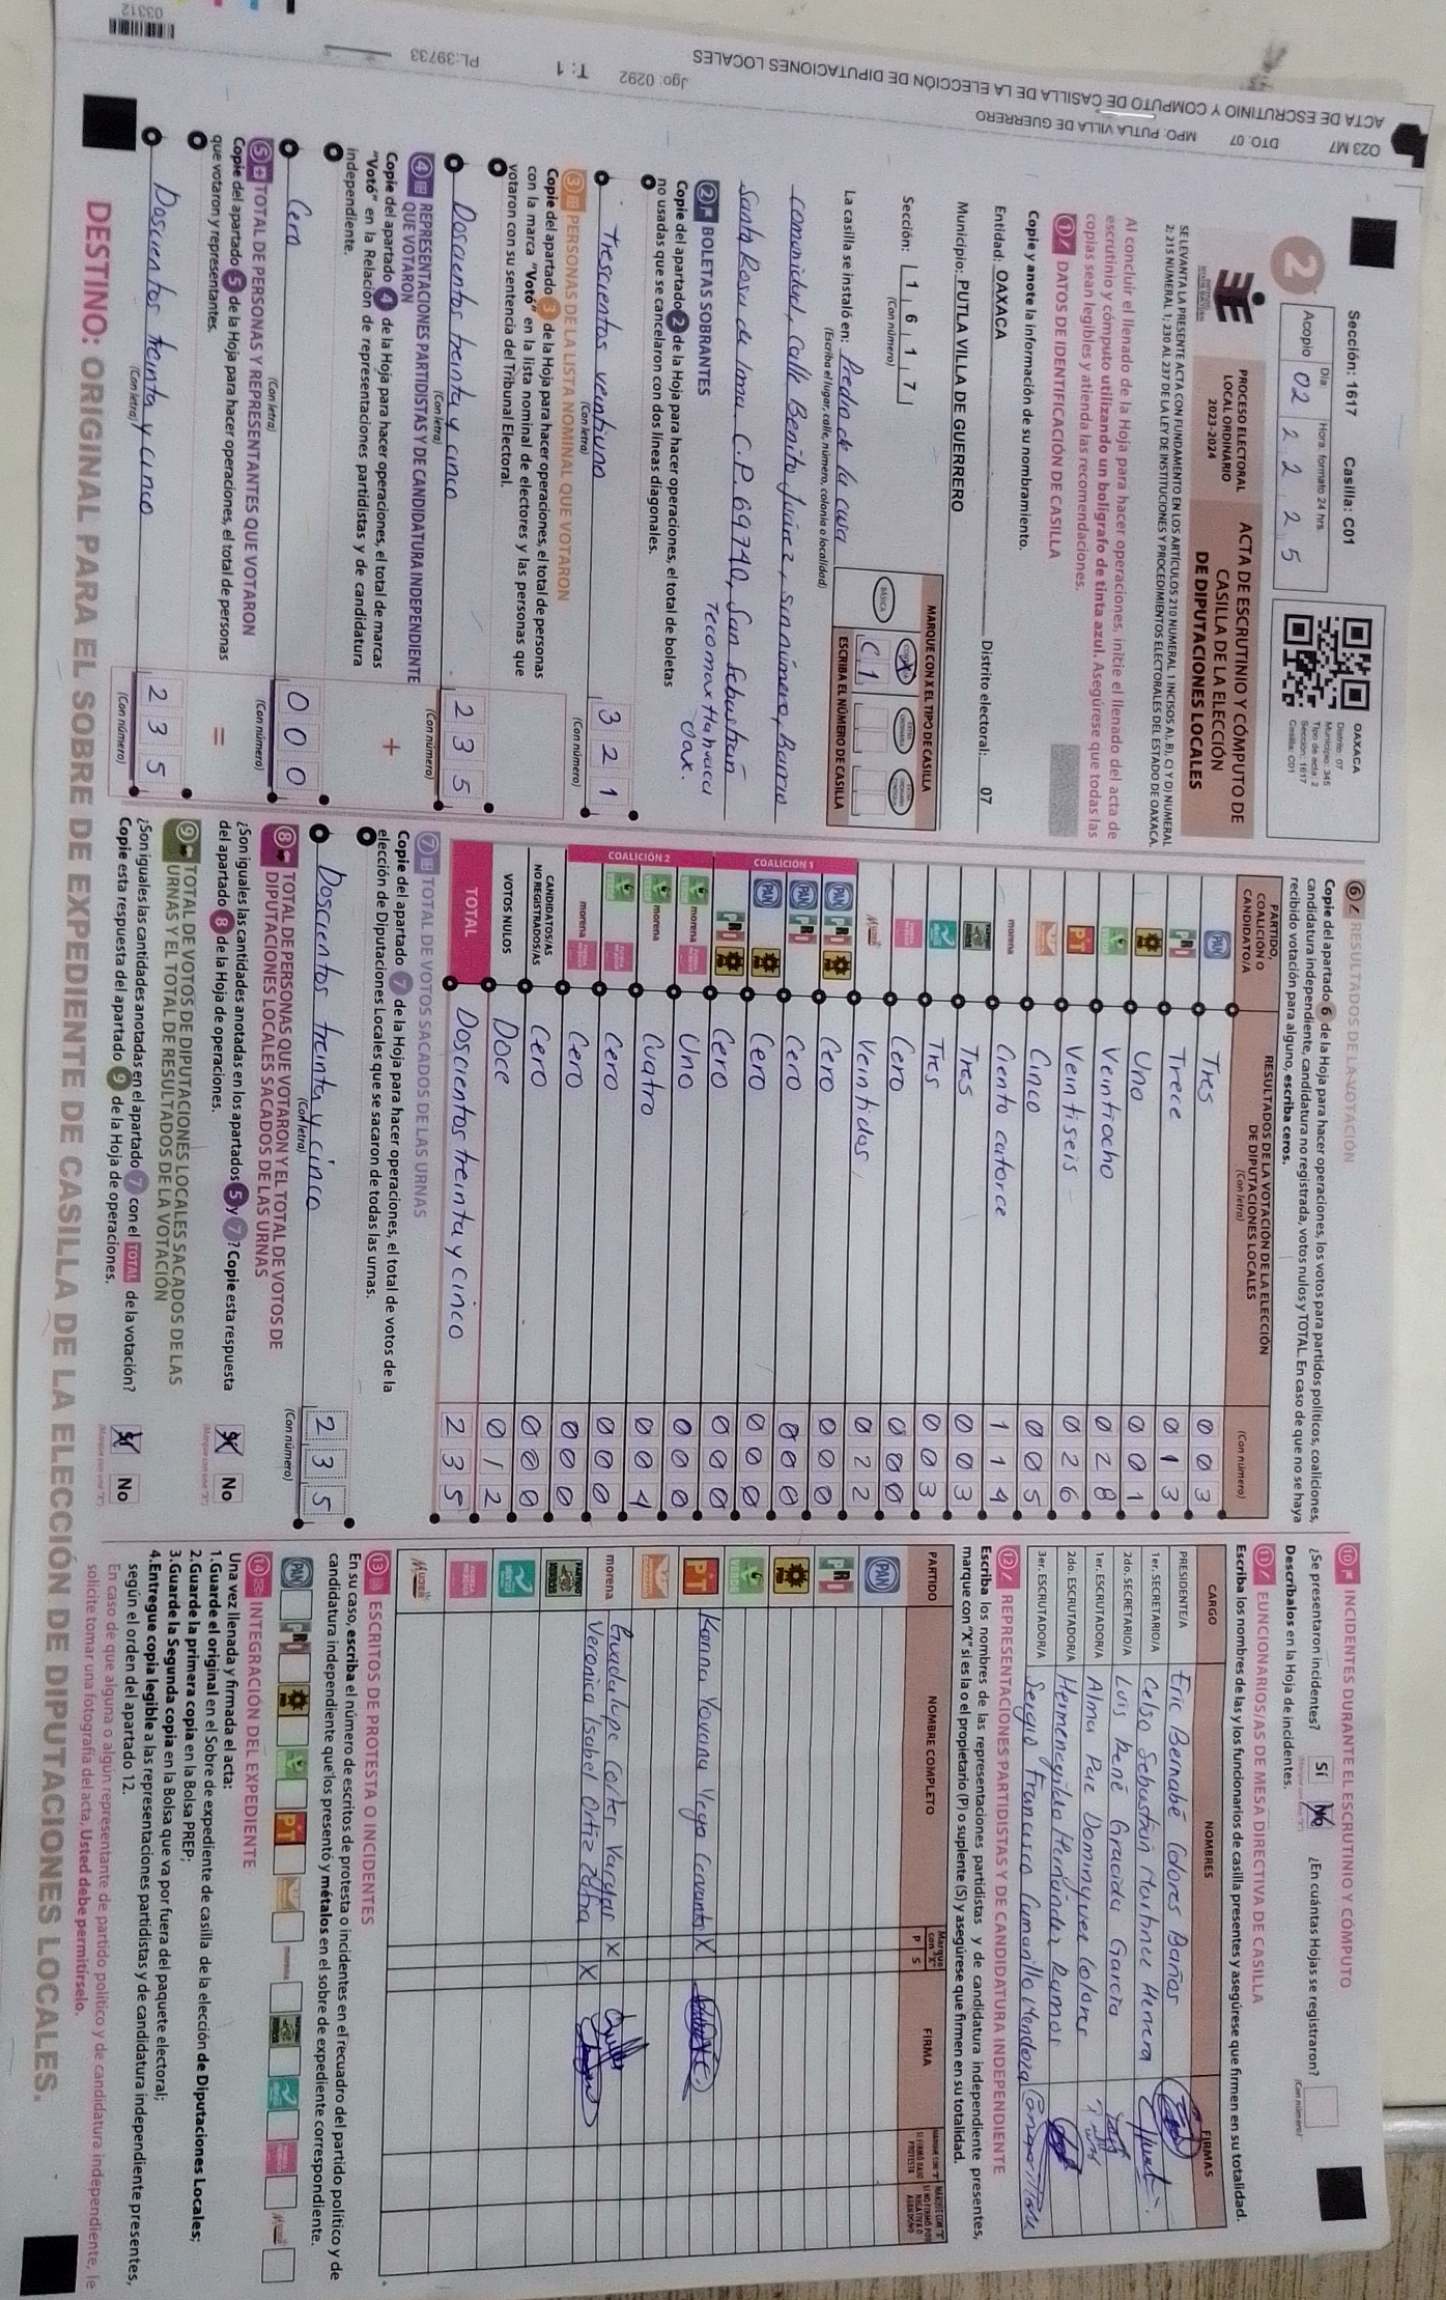 Sección: 1617 Casilla: C01
Día: Hora: formato 24 hrs.
Acopio 02 22 25
2
OAXACA
Distrito: 07
Municipio: 345
Tipo de acta: 2
Sección: 1617
Casilla: C01
PROCESO ELECTORAL
LOCAL ORDINARIO
2023-2024
ACTA DE ESCRUTINIO Y CÓMPUTO DE
CASILLA DE LA ELECCIÓN
DE DIPUTACIONES LOCALES
SE LEVANTA LA PRESENTE ACTA CON FUNDAMENTO EN LOS ARTÍCULOS 210 NUMERAL 1 INCISOS A), B), C) Y D) NUMERAL
2; 215 NUMERAL 1; 230 AL 237 DE LA LEY DE INSTITUCIONES Y PROCEDIMIENTOS ELECTORALES DEL ESTADO DE OAXACA.
Al concluir el llenado de la Hoja para hacer operaciones, inicie el llenado del acta de
escrutinio y cómputo utilizando un bolígrafo de tinta azul. Asegúrese que todas las
copias sean legibles y atienda las recomendaciones.
1 DATOS DE IDENTIFICACIÓN DE CASILLA
Copie y anote la información de su nombramiento.
Entidad: OAXACA Distrito electoral: 07
Municipio: PUTLA VILLA DE GUERRERO
Sección: 1 6 1 7
(Con número)
MARQUE CON X EL TIPO DE CASILLA
BÁSICA
C 1
ESCRIBA EL NÚMERO DE CASILLA
La casilla se instaló en: Predio de la casa
(Escriba el lugar, calle, número, colonia o localidad)
comunidad, Calle Benito Juárez, sin número, Barrio
Santa Rosa de Lima C.P. 69740, San Sebastián
Tecomaxtlahuaca
Oax.
2 BOLETAS SOBRANTES
Copie del apartado 2 de la Hoja para hacer operaciones, el total de boletas
no usadas que se cancelaron con dos líneas diagonales.
Trescientos veintiuno 3 2 1
(Con letra) (Con número)
3 PERSONAS DE LA LISTA NOMINAL QUE VOTARON
Copie del apartado 3 de la Hoja para hacer operaciones, el total de personas
con la marca "Votó" en la lista nominal de electores y las personas que
votaron con su sentencia del Tribunal Electoral.
Doscientos treinta y cinco 2 3 5
(Con letra) (Con número)
4 REPRESENTACIONES PARTIDISTAS Y DE CANDIDATURA INDEPENDIENTE
QUE VOTARON
Copie del apartado 4 de la Hoja para hacer operaciones, el total de marcas
"Votó" en la Relación de representaciones partidistas y de candidatura
independiente.
+
Cero 0 0 0
(Con letra) (Con número)
5 TOTAL DE PERSONAS Y REPRESENTANTES QUE VOTARON
Copie del apartado 5 de la Hoja para hacer operaciones, el total de personas
que votaron y representantes.
=
Doscientos treinta y cinco 2 3 5
(Con letra) (Con número)
6 RESULTADOS DE LA VOTACIÓN
Copie del apartado 6 de la Hoja para hacer operaciones, los votos para partidos políticos, coaliciones,
candidatura independiente, candidatura no registrada, votos nulos y TOTAL. En caso de que no se haya
recibido votación para alguno, escriba ceros.
PARTIDO,
COALICIÓN O
CANDIDATO/A
RESULTADOS DE LA VOTACIÓN DE LA ELECCIÓN
DE DIPUTACIONES LOCALES
(Con letra) (Con número)
PAN Tres 0 0 3
PRI Trece 0 1 3
PRD Uno 0 0 1
VERDE Veintiocho 0 2 8
PT Veintiseis 0 2 6
Cinco 0 0 5
morena Ciento catorce 1 1 4
Tres 0 0 3
Tres 0 0 3
Cero 0 0 0
Veintidos 0 2 2
COALICIÓN 1
PAN PRI PRD Cero 0 0 0
PAN PRI Cero 0 0 0
PAN PRD Cero 0 0 0
PRI PRD Cero 0 0 0
COALICIÓN 2
morena Uno 0 0 0
morena Cuatro 0 0 4
Cero 0 0 0
morena Cero 0 0 0
CANDIDATOS/AS
NO REGISTRADOS/AS Cero 0 0 0
VOTOS NULOS Doce 0 1 2
TOTAL Doscientos treinta y cinco 2 3 5
7 TOTAL DE VOTOS SACADOS DE LAS URNAS
Copie del apartado 7 de la Hoja para hacer operaciones, el total de votos de la
elección de Diputaciones Locales que se sacaron de todas las urnas.
Doscientos treinta y cinco 2 3 5
(Con letra) (Con número)
8 TOTAL DE PERSONAS QUE VOTARON Y EL TOTAL DE VOTOS DE
DIPUTACIONES LOCALES SACADOS DE LAS URNAS
¿Son iguales las cantidades anotadas en los apartados 5 y 7? Copie esta respuesta
del apartado 8 de la Hoja de operaciones.
Sí No
9 TOTAL DE VOTOS DE DIPUTACIONES LOCALES SACADOS DE LAS
URNAS Y EL TOTAL DE RESULTADOS DE LA VOTACIÓN
¿Son iguales las cantidades anotadas en el apartado 7 con el TOTAL de la votación?
Copie esta respuesta del apartado 9 de la Hoja de operaciones.
Sí No
10 INCIDENTES DURANTE EL ESCRUTINIO Y CÓMPUTO
¿Se presentaron incidentes? Sí No ¿En cuántas Hojas se registraron?
(Con número)
Descríbalos en la Hoja de incidentes.
11 FUNCIONARIOS/AS DE MESA DIRECTIVA DE CASILLA
Escriba los nombres de las y los funcionarios de casilla presentes y asegúrese que firmen en su totalidad.
CARGO NOMBRES FIRMAS
PRESIDENTE/A Eric Bernabé Colores Baños
1er. SECRETARIO/A Celso Sebastian Martinez Herrera
2do. SECRETARIO/A Luis René Gracida García
1er. ESCRUTADOR/A Alma Paz Dominguez Colores
2do. ESCRUTADOR/A Hemenegildo Hernández Ramos
3er. ESCRUTADOR/A Sergio Francisco Camarillo Mendoza
12 REPRESENTACIONES PARTIDISTAS Y DE CANDIDATURA INDEPENDIENTE
Escriba los nombres de las representaciones partidistas y de candidatura independiente presentes,
marque con "X" si es la o el propietario (P) o suplente (S) y asegúrese que firmen en su totalidad.
PARTIDO NOMBRE COMPLETO Marque con "X" P S FIRMA
PAN
PRI
PRD
VERDE
PT Karina Yovana Vega Cervantes X
morena Guadalupe Cortez Vargas X
Veronica Isabel Ortiz X
13 ESCRITOS DE PROTESTA O INCIDENTES
En su caso, escriba el número de escritos de protesta o incidentes en el recuadro del partido político y de
candidatura independiente que los presentó y métalos en el sobre de expediente correspondiente.
14 INTEGRACIÓN DEL EXPEDIENTE
Una vez llenada y firmada el acta:
1.Guarde el original en el Sobre de expediente de casilla de la elección de Diputaciones Locales;
2.Guarde la primera copia en la Bolsa PREP;
3.Guarde la Segunda copia en la Bolsa que va por fuera del paquete electoral;
4.Entregue copia legible a las representaciones partidistas y de candidatura independiente presentes,
según el orden del apartado 12.
En caso de que alguna o algún representante de partido político y de candidatura independiente, le
solicite tomar una fotografía del acta, Usted debe permitírselo.
DESTINO: ORIGINAL PARA EL SOBRE DE EXPEDIENTE DE CASILLA DE LA ELECCIÓN DE DIPUTACIONES LOCALES.
O23 M7 DTO. 07 MPO. PUTLA VILLA DE GUERRERO
ACTA DE ESCRUTINIO Y COMPUTO DE CASILLA DE LA ELECCIÓN DE DIPUTACIONES LOCALES
Jgo: 0292 T: 1 PL:39733
03312